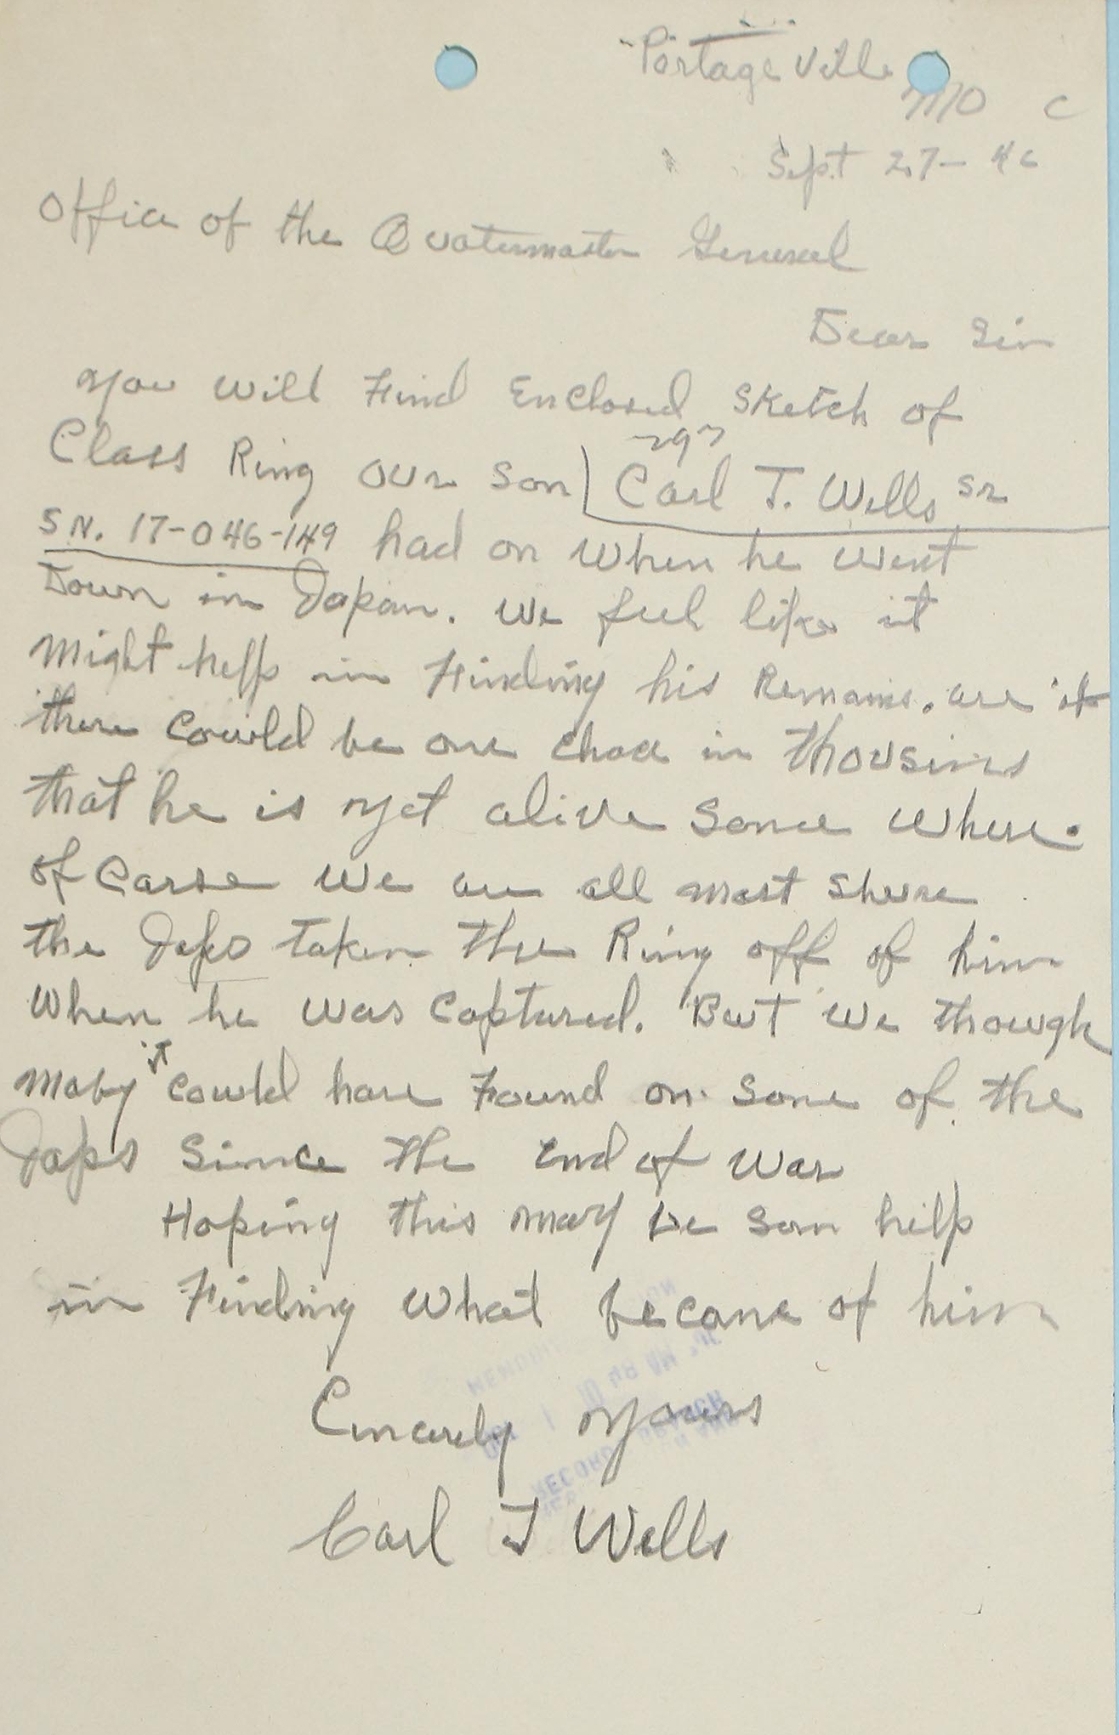 Portage Ville
MO C
Sept 27- 46
Office of the Quatermaster General
Dear Sir
You will Find Enclosed Sketch of
293
Class Ring our Son Carl T. Wells Sr
SN. 17-046-149 had on when he went
Down in Japan. We feel like it
Might help in Finding his Remains. are if
there could be one chace in thousins
that he is yet alive Some where.
of Carse we are all most Shure
the Japs taken the Ring off of him
When he was Captured. But we though
maby it could have Found on Some of the
Japs Since the End of War
Hoping this may be Som help
in Finding what became of him
Cincerely Yours
Carl T Wells